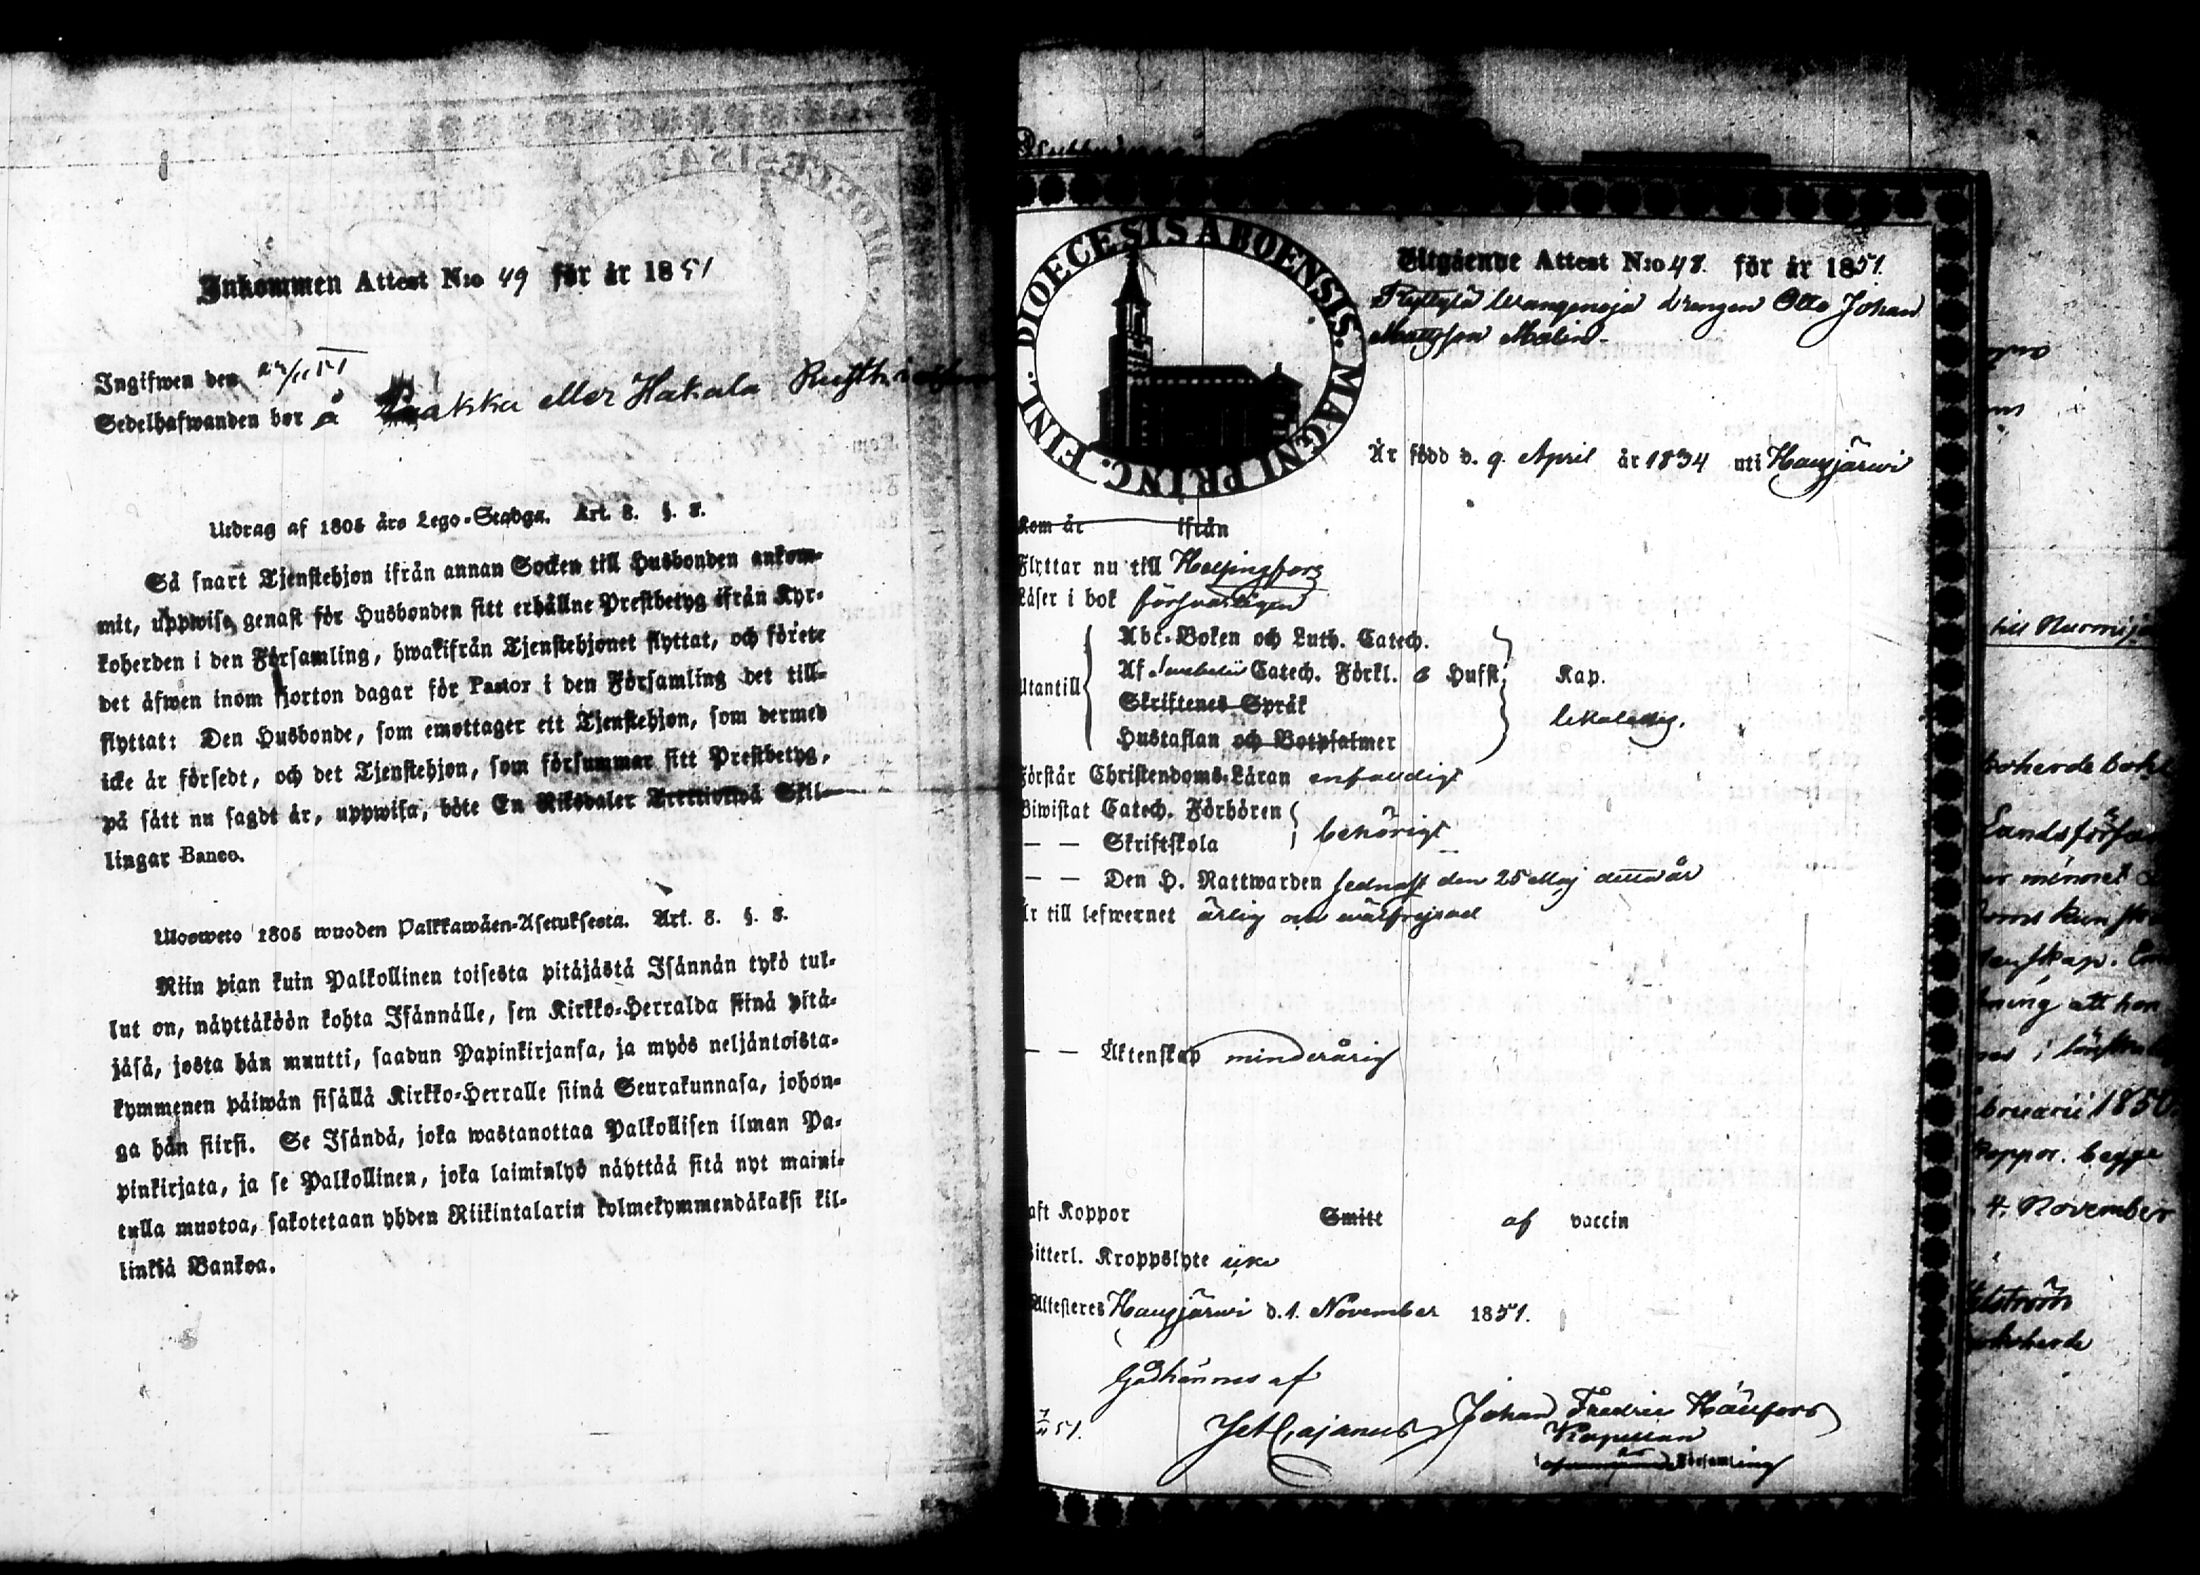 Inkommen Attest N:o 49 för år 1851
Ingifwen den 22/11 51
Sedelhafwanden bor å Paakka eller Hakala
Utdrag af 1805 års Lego-Stadga. Art. 8. §. 8.
Så snart Tjenstehjon ifrån annan Socken till Husbonden ankom-
mit, uppwise genast för Husbonden sitt erhållne Prestbetyg ifrån Kyr-
koherden i den Församling, hwakifrån Tjenstehjonet flyttat, och förete
det äfwen inom fjorton dagar för Pastor i den Församling det till-
flyttat: Den Husbonde, som emottager ett Tjenstehjon, som dermed
icke är försedt, och det Tjenstehjon, som försummar sitt Prestbetyg,
på sätt nu sagdt är, uppwisa, böte En Riksdaler Trettiotwå Skil-
lingar Banco.
Ulosweto 1805 wuoden Palkkawäen-Asetuksesta. Art. 8. §. 8.
Niin pian kuin Palkollinen toisesta pitäjästä Isännän tykö tul-
lut on, näyttäköön kohta Isännälle, sen Kirkko-Herralda siinä pitä-
jäsä, josta hän muutti, saadun Papinkirjansa, ja myös neljäntoista-
kymmenen päiwän sisällä Kirkko-Herralle siinä Seurakunnasa, johon-
ga hän siirsi. Se Isändä, joka wastanottaa Palkollisen ilman Pa-
pinkirjata, ja se Palkollinen, joka laiminlyö näyttää sitä nyt maini-
tulla muotoa, sakotetaan yhden Riikintalarin kolmekymmendäkaksi kil-
linkiä Bankoa.
DIOECESIS ABOENSIS. MAGNI PRINC. FINL.
Utgående Attest N:o 48. för år 1851.
drengen Otto Johan
Mattsson Malin
Är född d. 9 April år 1834 uti Hausjärwi
Kom år ifrån
Flyttar nu till Helsingfors
Läser i bok försvarligen
Abc-Boken och Luth. Catech.
Utantill Af Catech. Förkl. o Husst. Kap.
Skriftenes Språk
Hustaflan och Botpsalmer
Förstår Christendoms-Läran enfaldigt
Biwistat Catech. Förhören behörigt
— — Skriftskola
— — Den H. Nattwarden sednast den 25 Maj detta år
Är till lefwernet ärlig och wälfrejdad
— — Äktenskap minderårig
Haft Koppor Smitt af vaccin
Bitterl. Kroppslyte icke
Attesteres Hausjärwi d. 1. November 1851.
Godkännes af
Cajanus Johan Fredric
Kapellan
Församling
till Nurmijä
Landsförsam
ning att hon
bruarii 1850.
koppor. begge
4. November